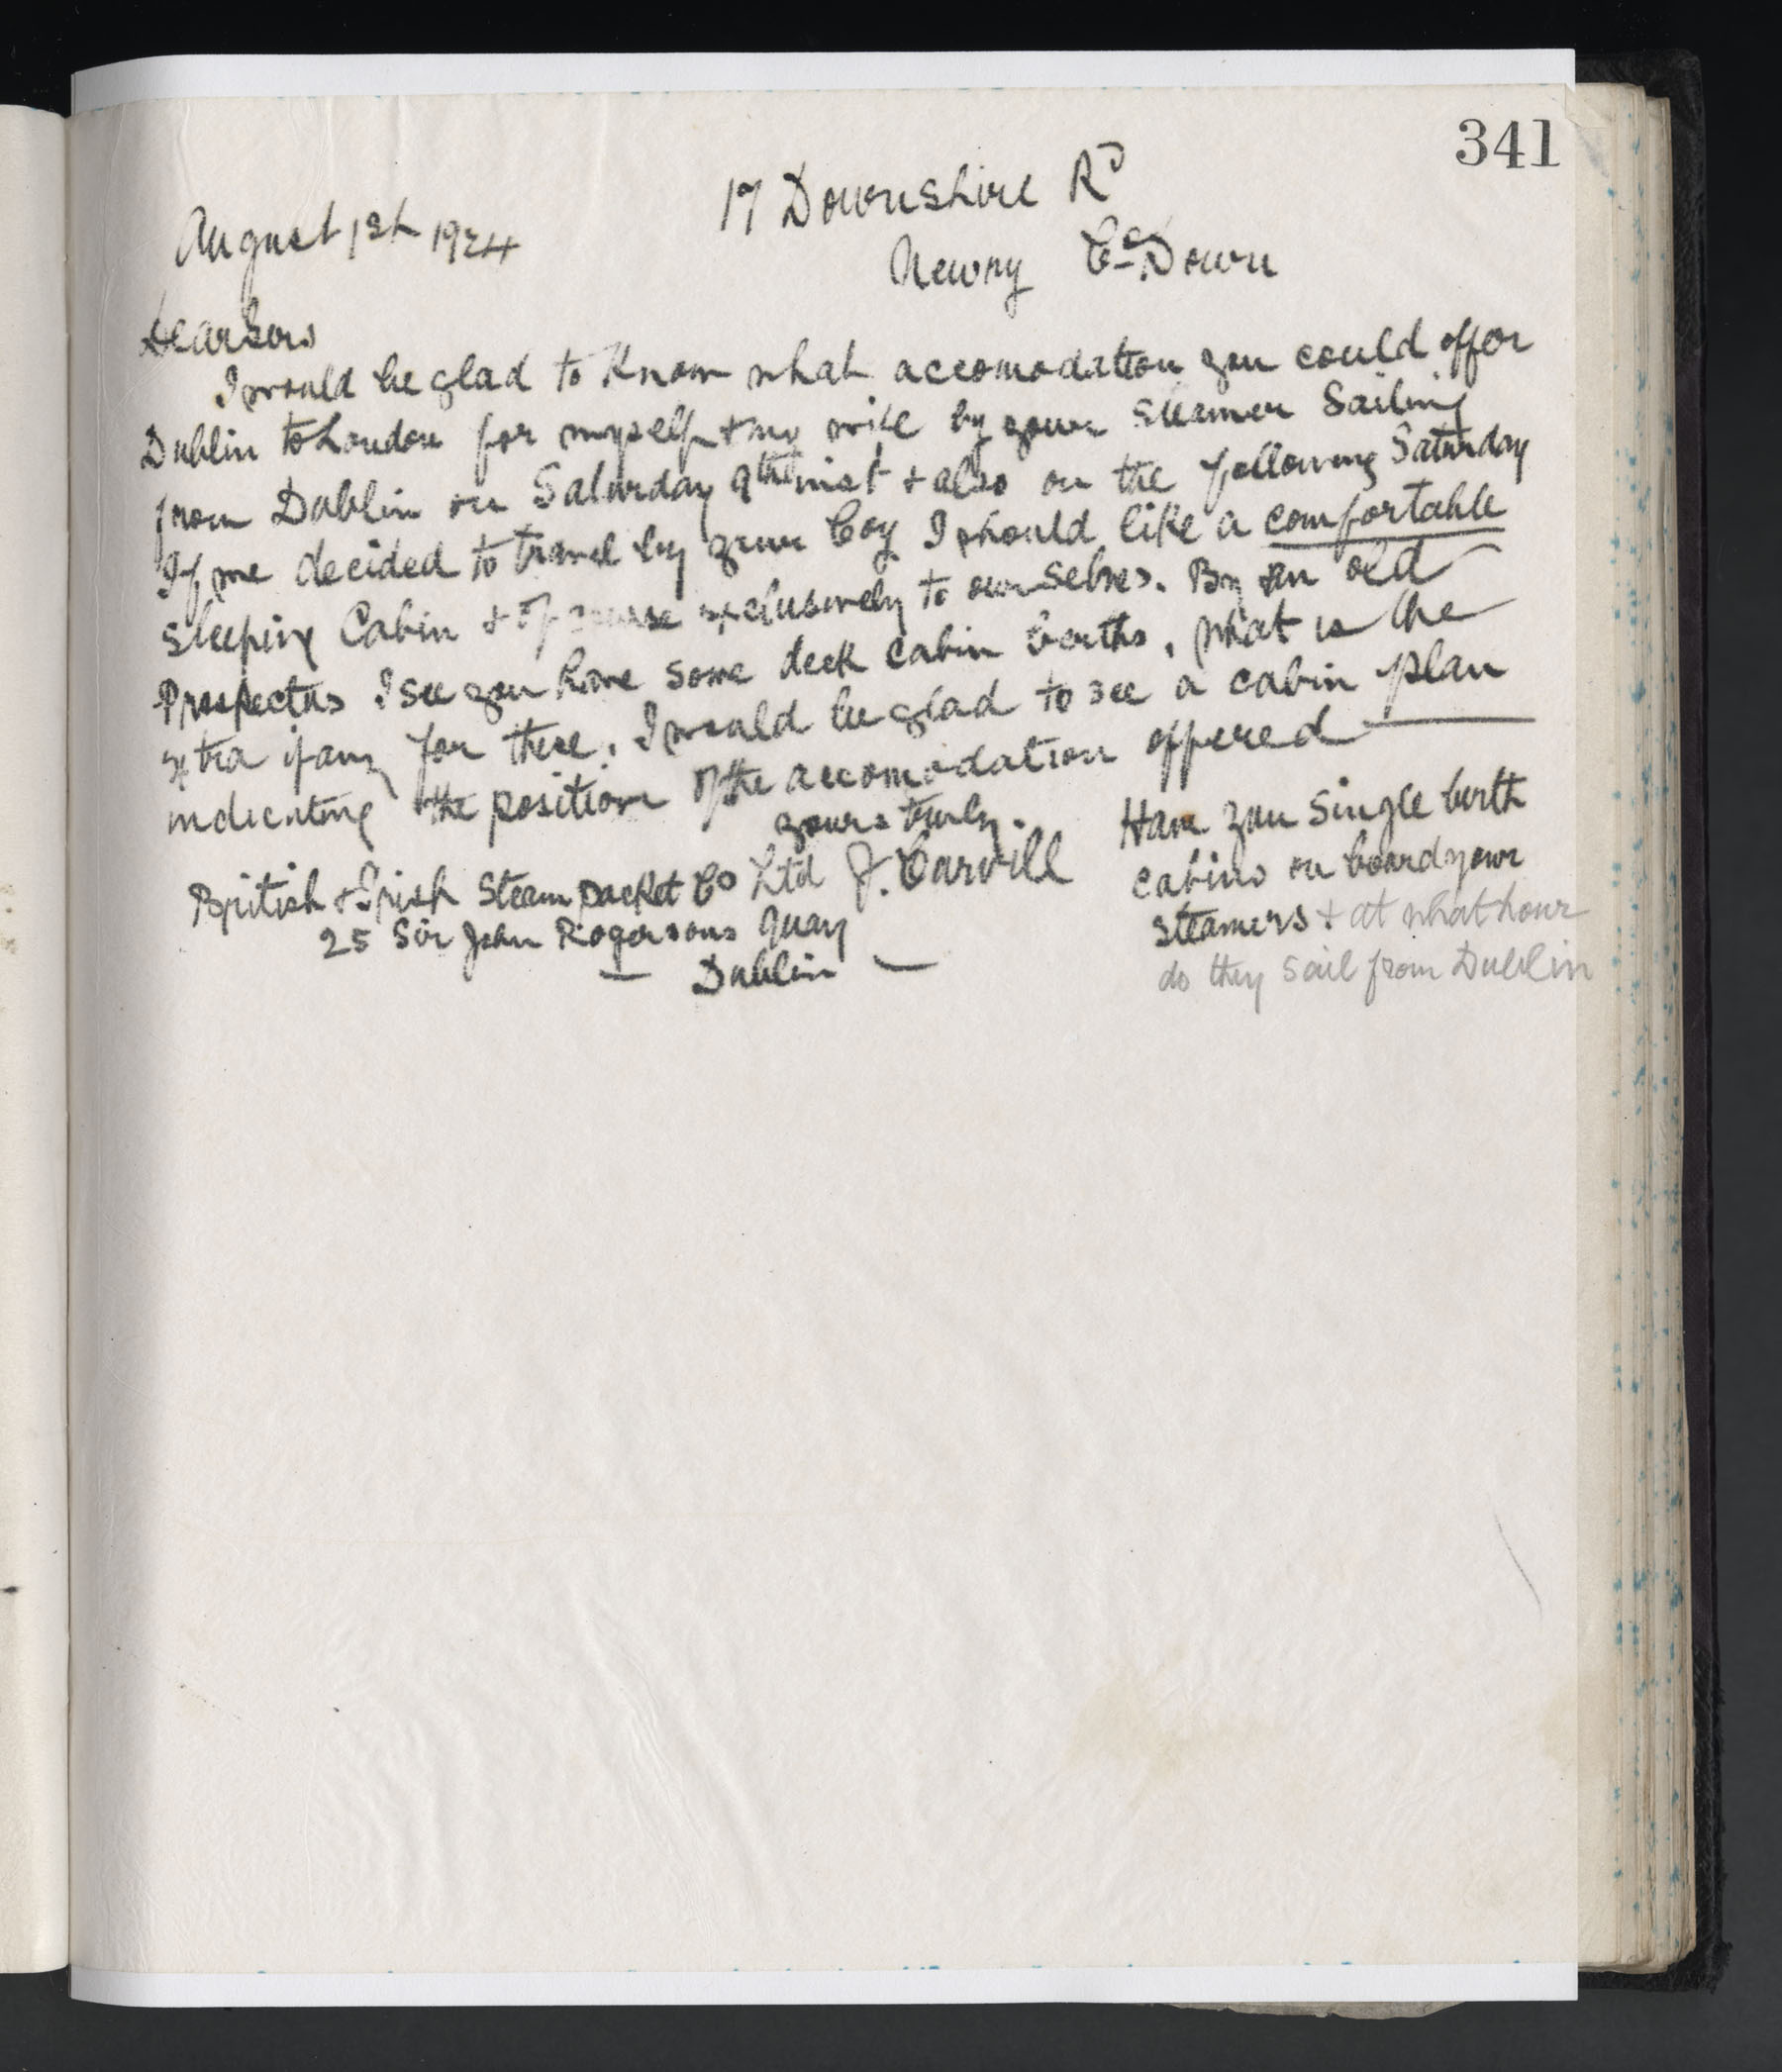 341
17 Downshire Rd
August 1st 1924
Newry Co Down
Dear Sirs
I would be glad to Know what accomodation you could offer
Dublin to London for myself & my wife by your steamer Sailing
from Dublin on Saturday 9th inst & also on the following Saturday
If we decided to travel by your Coy I should like a comfortable
sleeping Cabin & of course exclusively to ourselves. By an old
Prospectus I see you have some deck cabin berths, what is the
extra if any for these. I would be glad to see a cabin plan
indicating the position of the accomodation offered
yours truly.
J. Carvill
British & Irish Steam packet Co Ltd
25 Sir John Rogersons Quay
— Dublin —
Have you Single berth
cabins on board your
steamers & at what hour
do they sail from Dublin